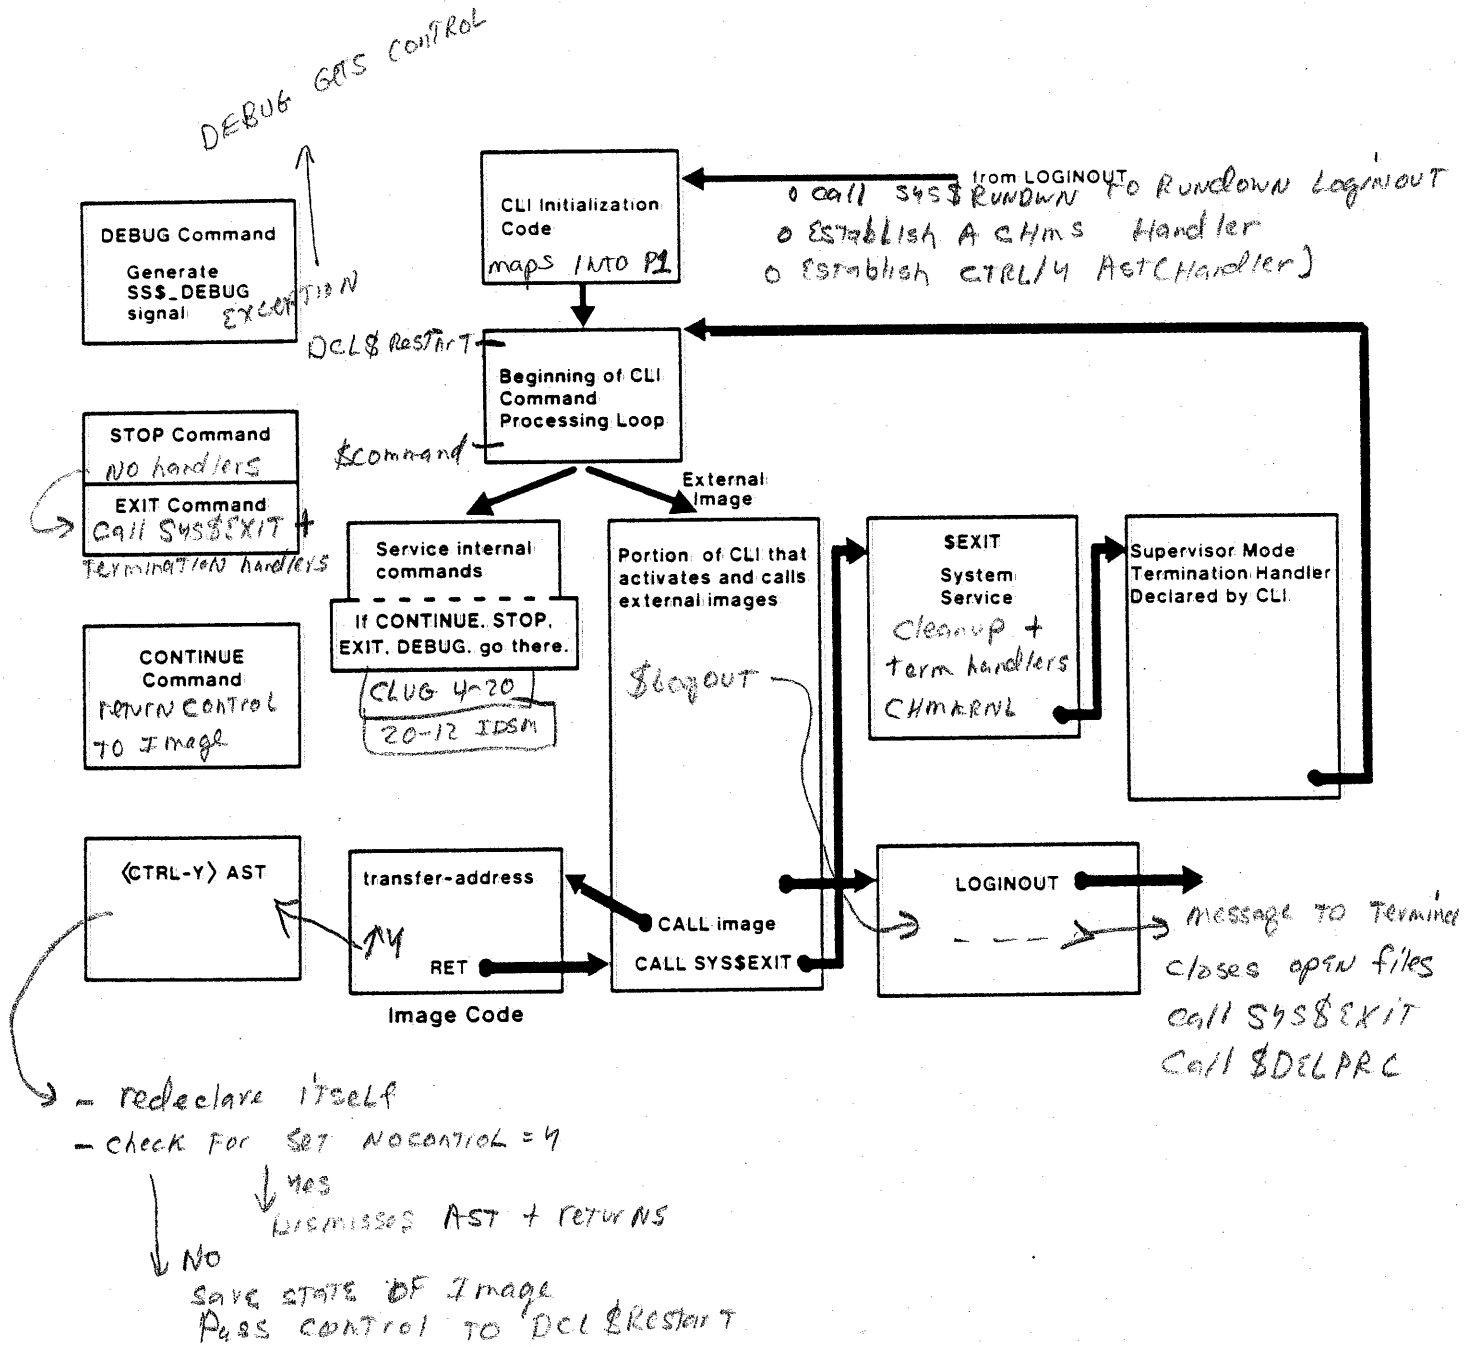 DEBUG GETS CONTROL
from LOGINOUT
o call SYS$RUNDWN TO RUNDOWN LOGINOUT
o Establish A CHMS Handler
o Establish CTRL/Y AST(Handler)
CLI Initialization
Code
maps INTO P1
DEBUG Command
Generate
SS$_DEBUG
signal
EXCEPTION
DCL$RESTART
Beginning of CLI
Command
Processing Loop
$command
STOP Command
NO handlers
EXIT Command
Call SYS$EXIT +
TERMINATION handlers
External
Image
Service internal
commands
If CONTINUE, STOP,
EXIT, DEBUG, go there.
CLUG 4-20
20-12 IDSM
Portion of CLI that
activates and calls
external images
$LOGOUT
CALL image
CALL SYS$EXIT
$EXIT
System
Service
Cleanup +
term handlers
CHMKRNL
Supervisor Mode
Termination Handler
Declared by CLI
CONTINUE
Command
return control
TO Image
<CTRL-Y> AST
transfer-address
↑Y
RET
Image Code
LOGINOUT
message TO Termina
closes open files
call SYS$EXIT
Call $DELPRC
- redeclare itself
- check For SET NOCONTROL = Y
Yes
Dismisses AST + returns
NO
Save STATE OF Image
Pass control TO DCL$Restart